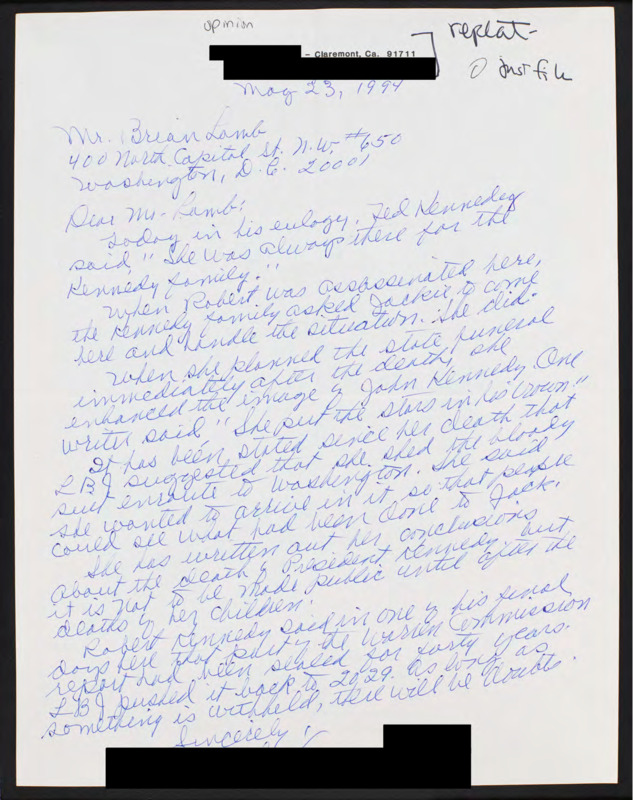 opinion
replat-
0 just file
- Claremont, Ca. 91711
May 23, 1994
Mr. Brian Lamb
400 North Capitol St. N.W. #650
Washington, D.C. 20001
Dear Mr. Lamb:
Today in his eulogy, Ted Kennedy
said, "She was always there for the
Kennedy family."
When Robert was assassinated here,
the Kennedy family asked Jackie to come
here and handle the situation. She did.
When she planned the state funeral
immediately after the death, she
enhanced the image of John Kennedy. One
writer said "She put the stars in his crown"
It has been stated since her death that
LBJ suggested that she shed the bloody
suit enroute to Washington. She said
she wanted to arrive in it, so that people
could see what had been done to Jack.
She has written out her conclusions
about the death of President Kennedy, but
it is not to be made public until after the
deaths of her children.
Robert Kennedy said in one of his final
days here that part of the Warren Commission
report had been sealed for forty years.
LBJ pushed it back to 2029. As long as
something is withheld, there will be doubts.
Sincerely,